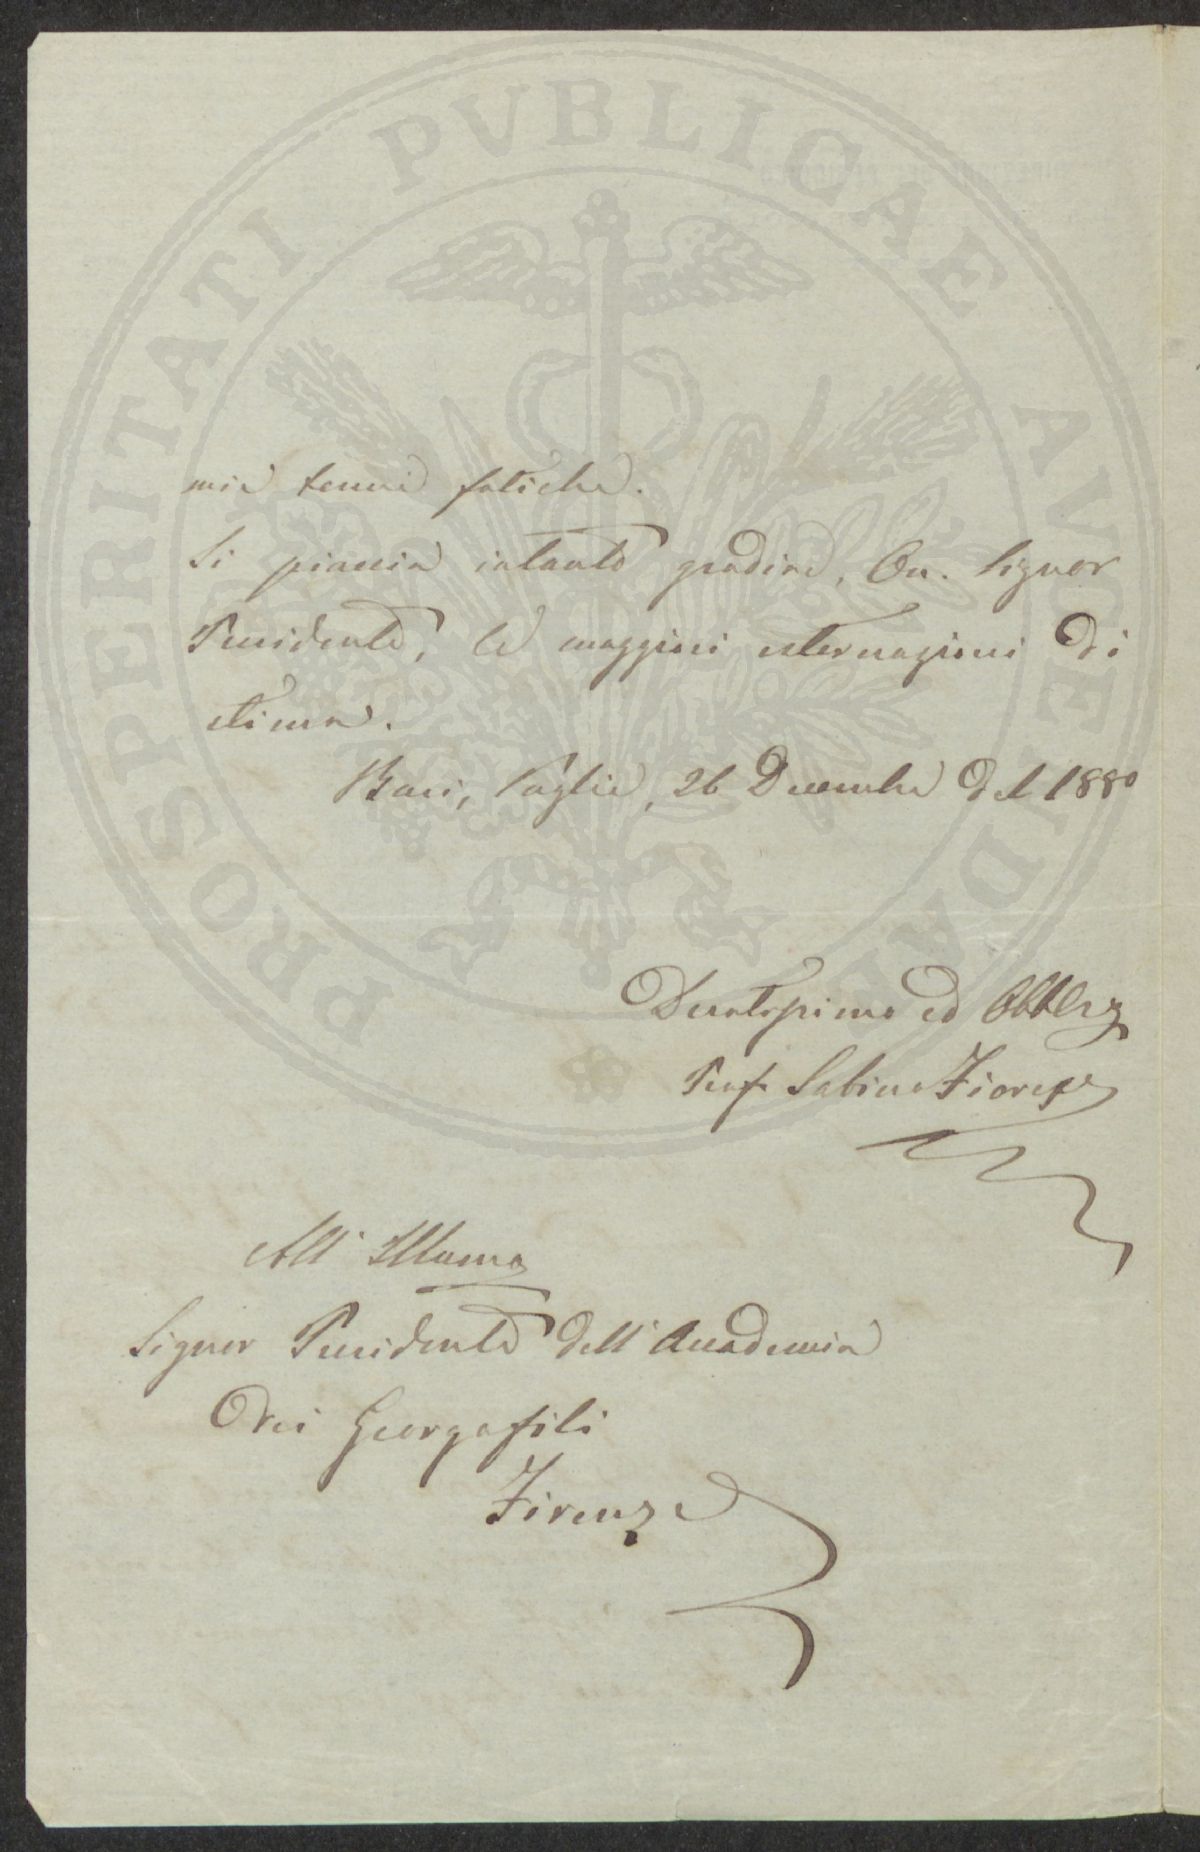 PROSPERITATI PVBLICAE AVGENDAE
mie tenui fatiche.
Si piaccia intanto gradire, On. Signor
Presidente, le maggiori esternazioni di
stima.
Bari, Puglie, 26 Decembre del 1880
Devotissimo ed Obblig
Prof. Sabino Fiorese
All' Illumo
Signor Presidente dell' Accademia
dei Georgofili
Firenze